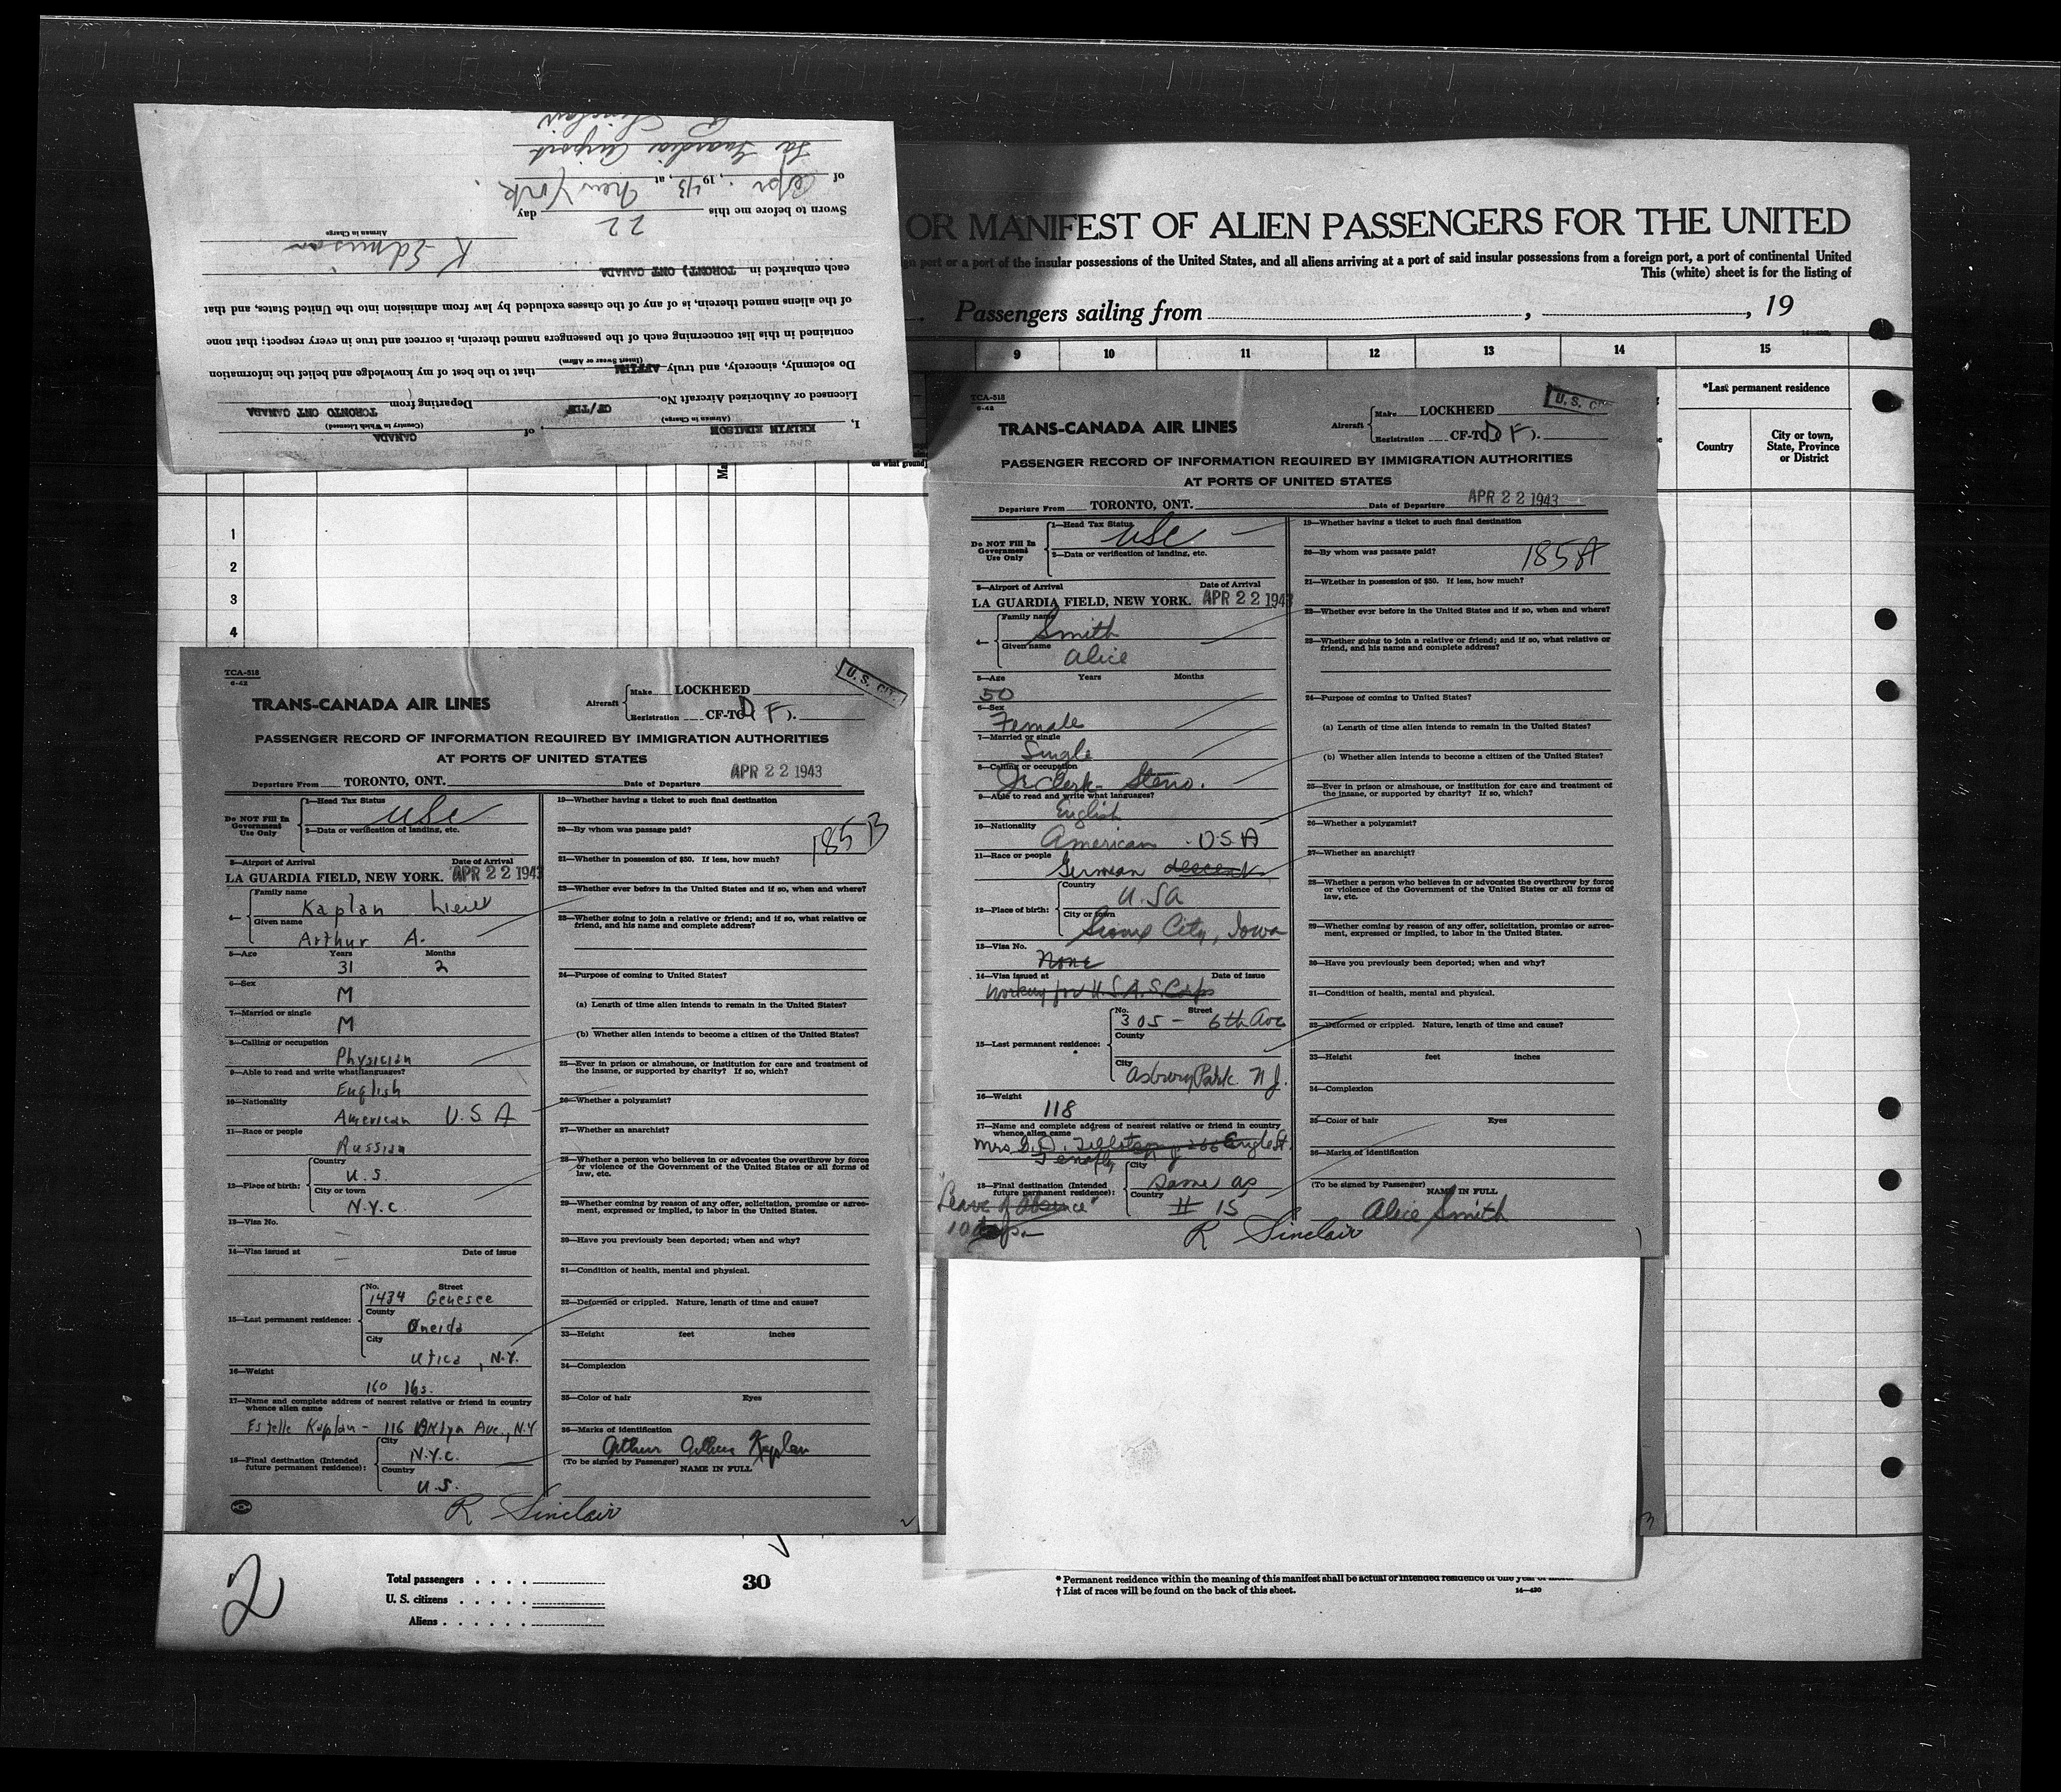 I, KELVIN EDMISON of CANADA
(Airman in Charge) (Country in Which Licensed)
Licensed or Authorized Aircraft No. Departing from TORONTO ONT CANADA
Do solemnly, sincerely, and truly AFFIRM that to the best of my knowledge and belief the information
(Insert Swear or Affirm)
contained in this list concerning each of the passengers named therein, is correct and true in every respect; that none
of the aliens named therein, is of any of the classes excluded by law from admission into the United States, and that
each embarked in TORONTO ONT CANADA
K Edmison
Airman in Charge
Sworn to before me this 22 day
of Apr. , 19 43, at New York.
La Guardia Airport
R Sinclair
OR MANIFEST OF ALIEN PASSENGERS FOR THE UNITED
port or a port of the insular possessions of the United States, and all aliens arriving at a port of said insular possessions from a foreign port, a port of continental United
This (white) sheet is for the listing of
Passengers sailing from , , 19
9 10 11 12 13 14 15
*Last permanent residence
Country
City or town, State, Province or District
on what ground
1
2
3
4
TCA-518
6-42
TRANS-CANADA AIR LINES
Aircraft
Make LOCKHEED
Registration CF-TC
U.S. CIT
PASSENGER RECORD OF INFORMATION REQUIRED BY IMMIGRATION AUTHORITIES
AT PORTS OF UNITED STATES
Departure From TORONTO, ONT. Date of Departure APR 22 1943
Do NOT Fill In Government Use Only
1—Head Tax Status USC
2—Data or verification of landing, etc.
3—Airport of Arrival Date of Arrival
LA GUARDIA FIELD, NEW YORK. APR 22 1943
4—
Family name Kaplan
Given name Arthur A.
5—Age Years 31 Months 2
6—Sex M
7—Married or single M
8—Calling or occupation Physician
9—Able to read and write what languages? English
10—Nationality American U.S A
11—Race or people Russian
12—Place of birth:
Country U.S.
City or town N.Y.C.
13—Visa No.
14—Visa issued at Date of issue
15—Last permanent residence:
No. Street 1434 Genesee
County Oneida
City Utica, N.Y.
16—Weight 160 lbs.
17—Name and complete address of nearest relative or friend in country whence alien came
Estelle Kaplan - 116 Bklyn Ave., N.Y
18—Final destination (Intended future permanent residence):
City N.Y.C.
Country U.S.
19—Whether having a ticket to such final destination
20—By whom was passage paid?
185 B
21—Whether in possession of $50. If less, how much?
22—Whether ever before in the United States and if so, when and where?
23—Whether going to join a relative or friend; and if so, what relative or friend, and his name and complete address?
24—Purpose of coming to United States?
(a) Length of time alien intends to remain in the United States?
(b) Whether alien intends to become a citizen of the United States?
25—Ever in prison or almshouse, or institution for care and treatment of the insane, or supported by charity? If so, which?
26—Whether a polygamist?
27—Whether an anarchist?
28—Whether a person who believes in or advocates the overthrow by force or violence of the Government of the United States or all forms of law, etc.
29—Whether coming by reason of any offer, solicitation, promise or agreement, expressed or implied, to labor in the United States.
30—Have you previously been deported; when and why?
31—Condition of health, mental and physical.
32—Deformed or crippled. Nature, length of time and cause?
33—Height feet inches
34—Complexion
35—Color of hair Eyes
36—Marks of identification
Arthur Kaplan
(To be signed by Passenger) NAME IN FULL
R Sinclair
2
TCA-518
6-42
TRANS-CANADA AIR LINES
Aircraft
Make LOCKHEED
Registration CF-TC
U.S. CIT
PASSENGER RECORD OF INFORMATION REQUIRED BY IMMIGRATION AUTHORITIES
AT PORTS OF UNITED STATES
Departure From TORONTO, ONT. Date of Departure APR 22 1943
Do NOT Fill In Government Use Only
1—Head Tax Status USC
2—Data or verification of landing, etc.
3—Airport of Arrival Date of Arrival
LA GUARDIA FIELD, NEW YORK. APR 22 1943
4—
Family name Smith
Given name Alice
5—Age Years Months
50
6—Sex Female
7—Married or single Single
8—Calling or occupation Jr Clerk-Steno.
9—Able to read and write what languages? English
10—Nationality American . U.S.A
11—Race or people German descent
12—Place of birth:
Country U.SA
City or town Sioux City, Iowa
13—Visa No. None
14—Visa issued at Date of issue
Working for U.S.A.S. Corps
15—Last permanent residence:
No. Street 305 - 6th Ave
County
City Asbury Park N J.
16—Weight 118
17—Name and complete address of nearest relative or friend in country whence alien came
Mrs. Engle St.
Tenafly
18—Final destination (Intended future permanent residence):
City same as
Country # 15
"Leave of Absence"
10 days-
19—Whether having a ticket to such final destination
20—By whom was passage paid?
185 A
21—Whether in possession of $50. If less, how much?
22—Whether ever before in the United States and if so, when and where?
23—Whether going to join a relative or friend; and if so, what relative or friend, and his name and complete address?
24—Purpose of coming to United States?
(a) Length of time alien intends to remain in the United States?
(b) Whether alien intends to become a citizen of the United States?
25—Ever in prison or almshouse, or institution for care and treatment of the insane, or supported by charity? If so, which?
26—Whether a polygamist?
27—Whether an anarchist?
28—Whether a person who believes in or advocates the overthrow by force or violence of the Government of the United States or all forms of law, etc.
29—Whether coming by reason of any offer, solicitation, promise or agreement, expressed or implied, to labor in the United States.
30—Have you previously been deported; when and why?
31—Condition of health, mental and physical.
32—Deformed or crippled. Nature, length of time and cause?
33—Height feet inches
34—Complexion
35—Color of hair Eyes
36—Marks of identification
(To be signed by Passenger) NAME IN FULL
Alice Smith
R Sinclair
2
Total passengers . . . .
U. S. citizens . . . . .
Aliens . . . . . .
30
* Permanent residence within the meaning of this manifest shall be actual or intended residence of one year or more.
† List of races will be found on the back of this sheet.